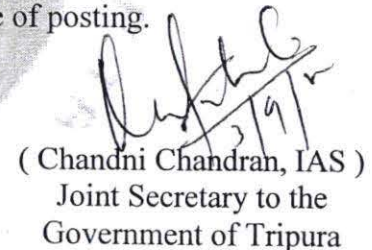 e of posting.
( Chandni Chandran, IAS )
Joint Secretary to the
Government of Tripura